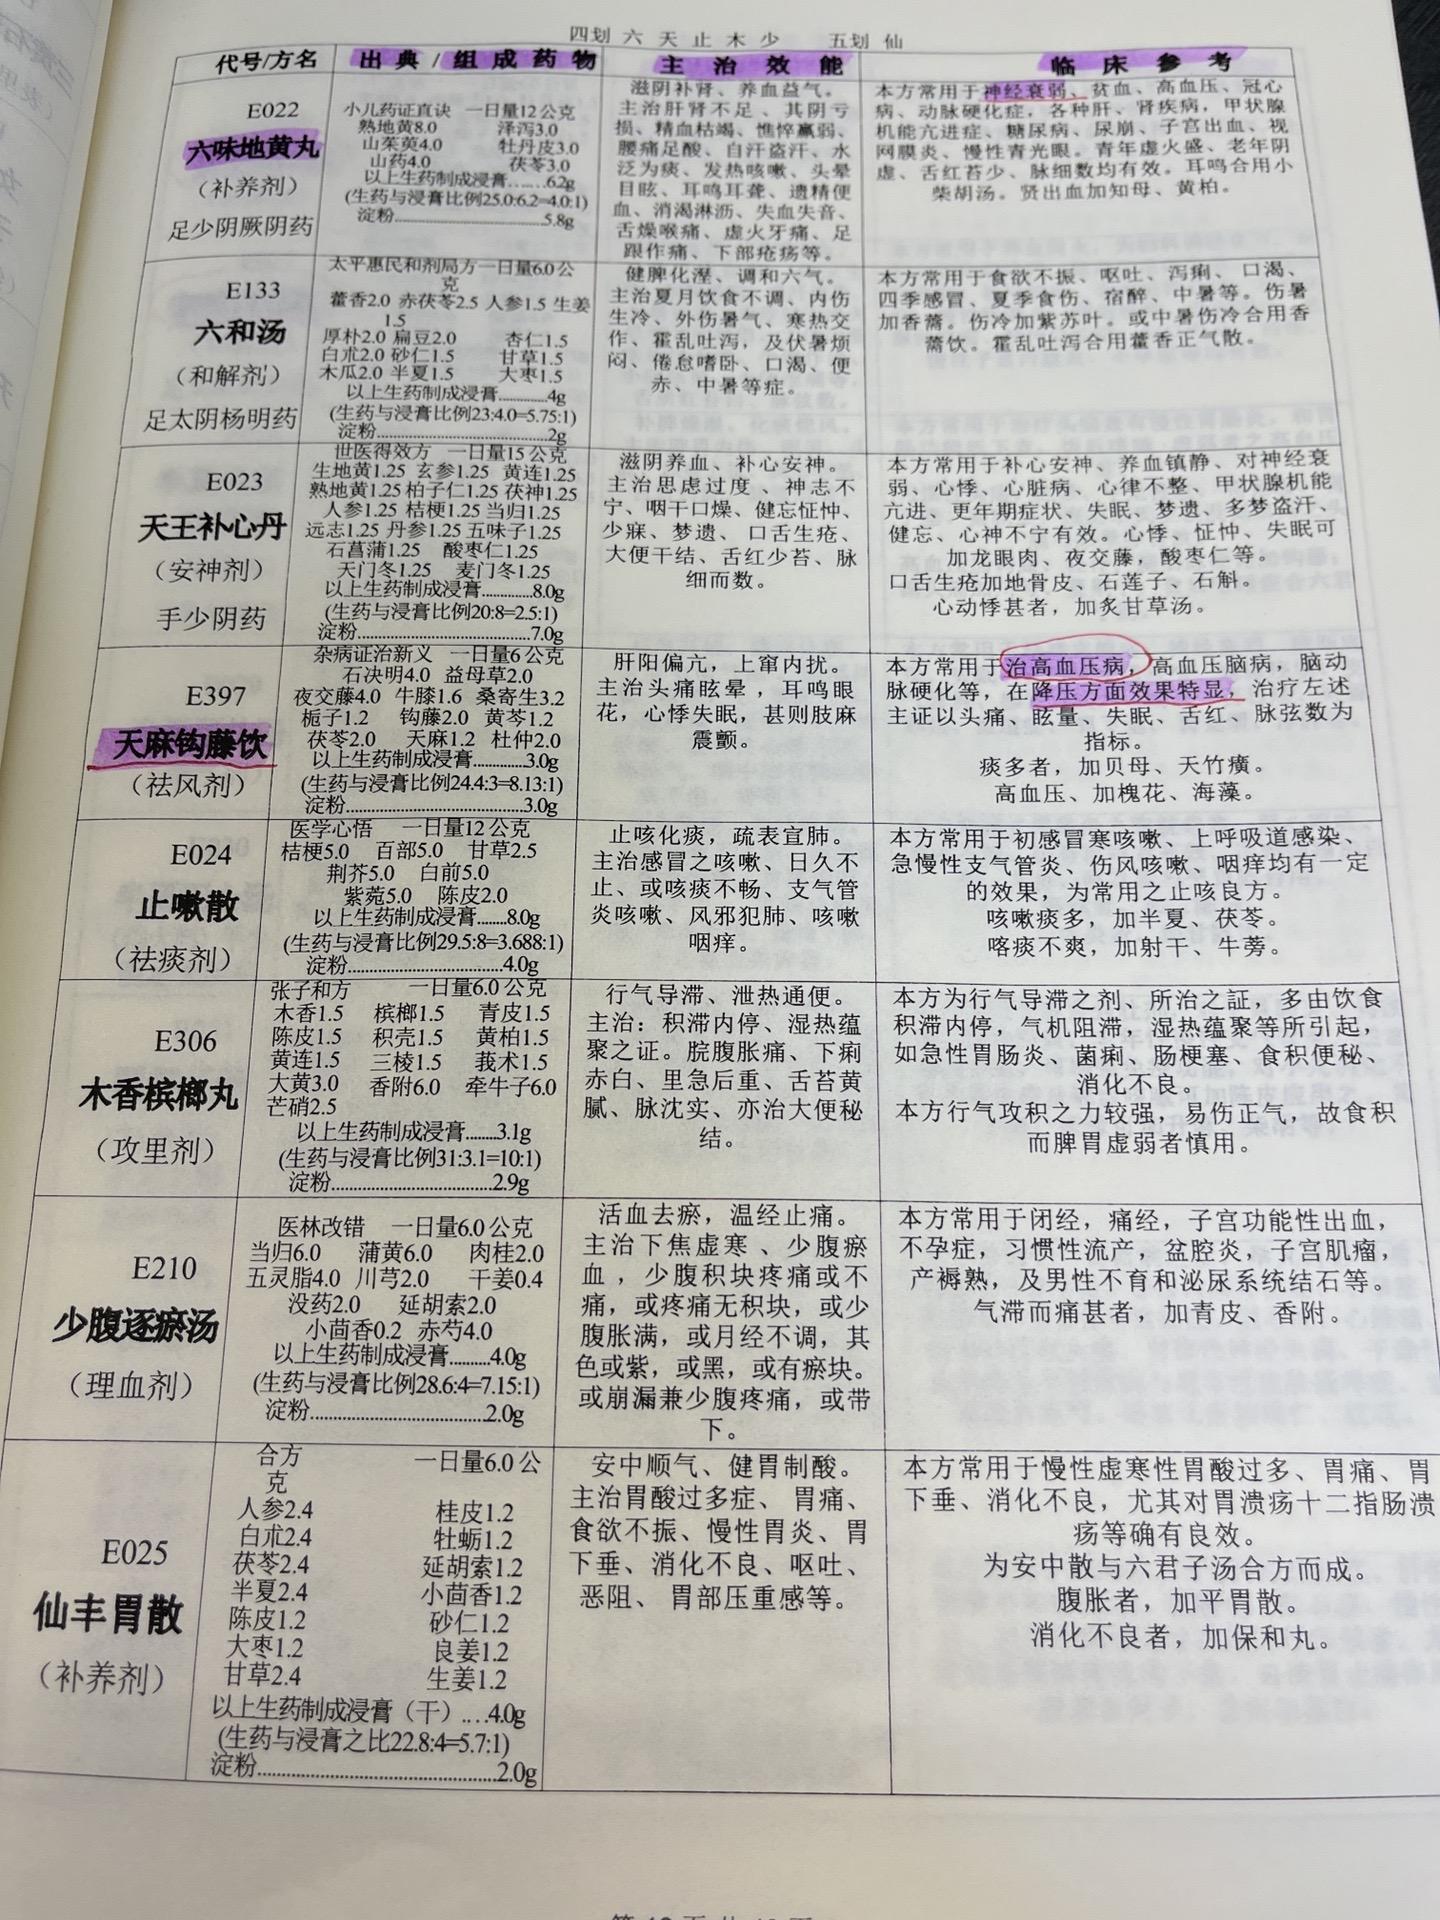 四划 六 天 止 木 少 五划 仙
代号/方名 出典/组成药物 主治效能 临床参考
E022
六味地黄丸
（补养剂）
足少阴厥阴药
小儿药证直诀 一日量12公克
熟地黄8.0 泽泻3.0
山茱萸4.0 牡丹皮3.0
山药4.0 茯苓3.0
以上生药制成浸膏......6.2g
(生药与浸膏比例25.0:6.2=4.0:1)
淀粉............5.8g
滋阴补肾、养血益气。
主治肝肾不足、其阴亏
损、精血枯竭、憔悴羸弱、
腰痛足酸、自汗盗汗、水
泛为痰、发热咳嗽、头晕
目眩、耳鸣耳聋、遗精便
血、消渴淋沥、失血失音、
舌燥喉痛、虚火牙痛、足
跟作痛、下部疮疡等。
本方常用于神经衰弱、贫血、高血压、冠心
病、动脉硬化症，各种肝、肾疾病，甲状腺
机能亢进症、糖尿病、尿崩、子宫出血、视
网膜炎、慢性青光眼。青年虚火盛、老年阴
虚、舌红苔少、脉细数均有效。耳鸣合用小
柴胡汤。贤出血加知母、黄柏。
E133
六和汤
（和解剂）
足太阴杨明药
太平惠民和剂局方一日量6.0公
克
藿香2.0 赤茯苓2.5 人参1.5 生姜
1.5
厚朴2.0 扁豆2.0 杏仁1.5
白朮2.0 砂仁1.5 甘草1.5
木瓜2.0 半夏1.5 大枣1.5
以上生药制成浸膏............4g
(生药与浸膏比例23:4.0=5.75:1)
淀粉............2g
健脾化溼、调和六气。
主治夏月饮食不调、内伤
生冷、外伤暑气、寒热交
作、霍乱吐泻，及伏暑烦
闷、倦怠嗜卧、口渴、便
赤、中暑等症。
本方常用于食欲不振、呕吐、泻痢、口渴、
四季感冒、夏季食伤、宿醉、中暑等。伤暑
加香薷。伤冷加紫苏叶。或中暑伤冷合用香
薷饮。霍乱吐泻合用藿香正气散。
E023
天王补心丹
（安神剂）
手少阴药
世医得效方 一日量15公克
生地黄1.25 玄参1.25 黄连1.25
熟地黄1.25 柏子仁1.25 茯神1.25
人参1.25 桔梗1.25 当归1.25
远志1.25 丹参1.25 五味子1.25
石菖蒲1.25 酸枣仁1.25
天门冬1.25 麦门冬1.25
以上生药制成浸膏............8.0g
(生药与浸膏比例20:8=2.5:1)
淀粉............7.0g
滋阴养血、补心安神。
主治思虑过度、神志不
宁、咽干口燥、健忘怔忡、
少寐、梦遗、口舌生疮、
大便干结、舌红少苔、脉
细而数。
本方常用于补心安神、养血镇静、对神经衰
弱、心悸、心脏病、心律不整、甲状腺机能
亢进、更年期症状、失眠、梦遗、多梦盗汗、
健忘、心神不宁有效。心悸、怔忡、失眠可
加龙眼肉、夜交藤，酸枣仁等。
口舌生疮加地骨皮、石莲子、石斛。
心动悸甚者，加炙甘草汤。
E397
天麻钩藤饮
（祛风剂）
杂病证治新义 一日量6公克
石决明4.0 益母草2.0
夜交藤4.0 牛膝1.6 桑寄生3.2
栀子1.2 钩藤2.0 黄芩1.2
茯苓2.0 天麻1.2 杜仲2.0
以上生药制成浸膏............3.0g
(生药与浸膏比例24.4:3=8.13:1)
淀粉............3.0g
肝阳偏亢，上窜内扰。
主治头痛眩晕，耳鸣眼
花，心悸失眠，甚则肢麻
震颤。
本方常用于治高血压病，高血压脑病，脑动
脉硬化等，在降压方面效果特显，治疗左述
主证以头痛、眩量、失眠、舌红、脉弦数为
指标。
痰多者，加贝母、天竹癀。
高血压、加槐花、海藻。
E024
止嗽散
（祛痰剂）
医学心悟 一日量12公克
桔梗5.0 百部5.0 甘草2.5
荆芥5.0 白前5.0
紫菀5.0 陈皮2.0
以上生药制成浸膏........8.0g
(生药与浸膏比例29.5:8=3.688:1)
淀粉............4.0g
止咳化痰，疏表宣肺。
主治感冒之咳嗽、日久不
止、或咳痰不畅、支气管
炎咳嗽、风邪犯肺、咳嗽
咽痒。
本方常用于初感冒寒咳嗽、上呼吸道感染、
急慢性支气管炎、伤风咳嗽、咽痒均有一定
的效果，为常用之止咳良方。
咳嗽痰多，加半夏、茯苓。
喀痰不爽，加射干、牛蒡。
E306
木香槟榔丸
（攻里剂）
张子和方 一日量6.0公克
木香1.5 槟榔1.5 青皮1.5
陈皮1.5 积壳1.5 黄柏1.5
黄连1.5 三棱1.5 莪术1.5
大黄3.0 香附6.0 牵牛子6.0
芒硝2.5
以上生药制成浸膏........3.1g
(生药与浸膏比例31:3.1=10:1)
淀粉............2.9g
行气导滞、泄热通便。
主治：积滞内停、湿热蕴
聚之证。脘腹胀痛、下痢
赤白、里急后重、舌苔黄
腻、脉沈实、亦治大便秘
结。
本方为行气导滞之剂、所治之証，多由饮食
积滞内停，气机阻滞，湿热蕴聚等所引起，
如急性胃肠炎、菌痢、肠梗塞、食积便秘、
消化不良。
本方行气攻积之力较强，易伤正气，故食积
而脾胃虚弱者慎用。
E210
少腹逐瘀汤
（理血剂）
医林改错 一日量6.0公克
当归6.0 蒲黄6.0 肉桂2.0
五灵脂4.0 川芎2.0 干姜0.4
没药2.0 延胡索2.0
小茴香0.2 赤芍4.0
以上生药制成浸膏..........4.0g
(生药与浸膏比例28.6:4=7.15:1)
淀粉............2.0g
活血去瘀，温经止痛。
主治下焦虚寒、少腹瘀
血，少腹积块疼痛或不
痛，或疼痛无积块，或少
腹胀满，或月经不调，其
色或紫，或黑，或有瘀块。
或崩漏兼少腹疼痛，或带
下。
本方常用于闭经，痛经，子宫功能性出血，
不孕症，习惯性流产，盆腔炎，子宫肌瘤，
产褥熟，及男性不育和泌尿系统结石等。
气滞而痛甚者，加青皮、香附。
E025
仙丰胃散
（补养剂）
合方 一日量6.0公
克
人参2.4 桂皮1.2
白朮2.4 牡蛎1.2
茯苓2.4 延胡索1.2
半夏2.4 小茴香1.2
陈皮1.2 砂仁1.2
大枣1.2 良姜1.2
甘草2.4 生姜1.2
以上生药制成浸膏（干）....4.0g
(生药与浸膏之比22.8:4=5.7:1)
淀粉............2.0g
安中顺气、健胃制酸。
主治胃酸过多症、胃痛、
食欲不振、慢性胃炎、胃
下垂、消化不良、呕吐、
恶阻、胃部压重感等。
本方常用于慢性虚寒性胃酸过多、胃痛、胃
下垂、消化不良，尤其对胃溃疡十二指肠溃
疡等确有良效。
为安中散与六君子汤合方而成。
腹胀者，加平胃散。
消化不良者，加保和丸。